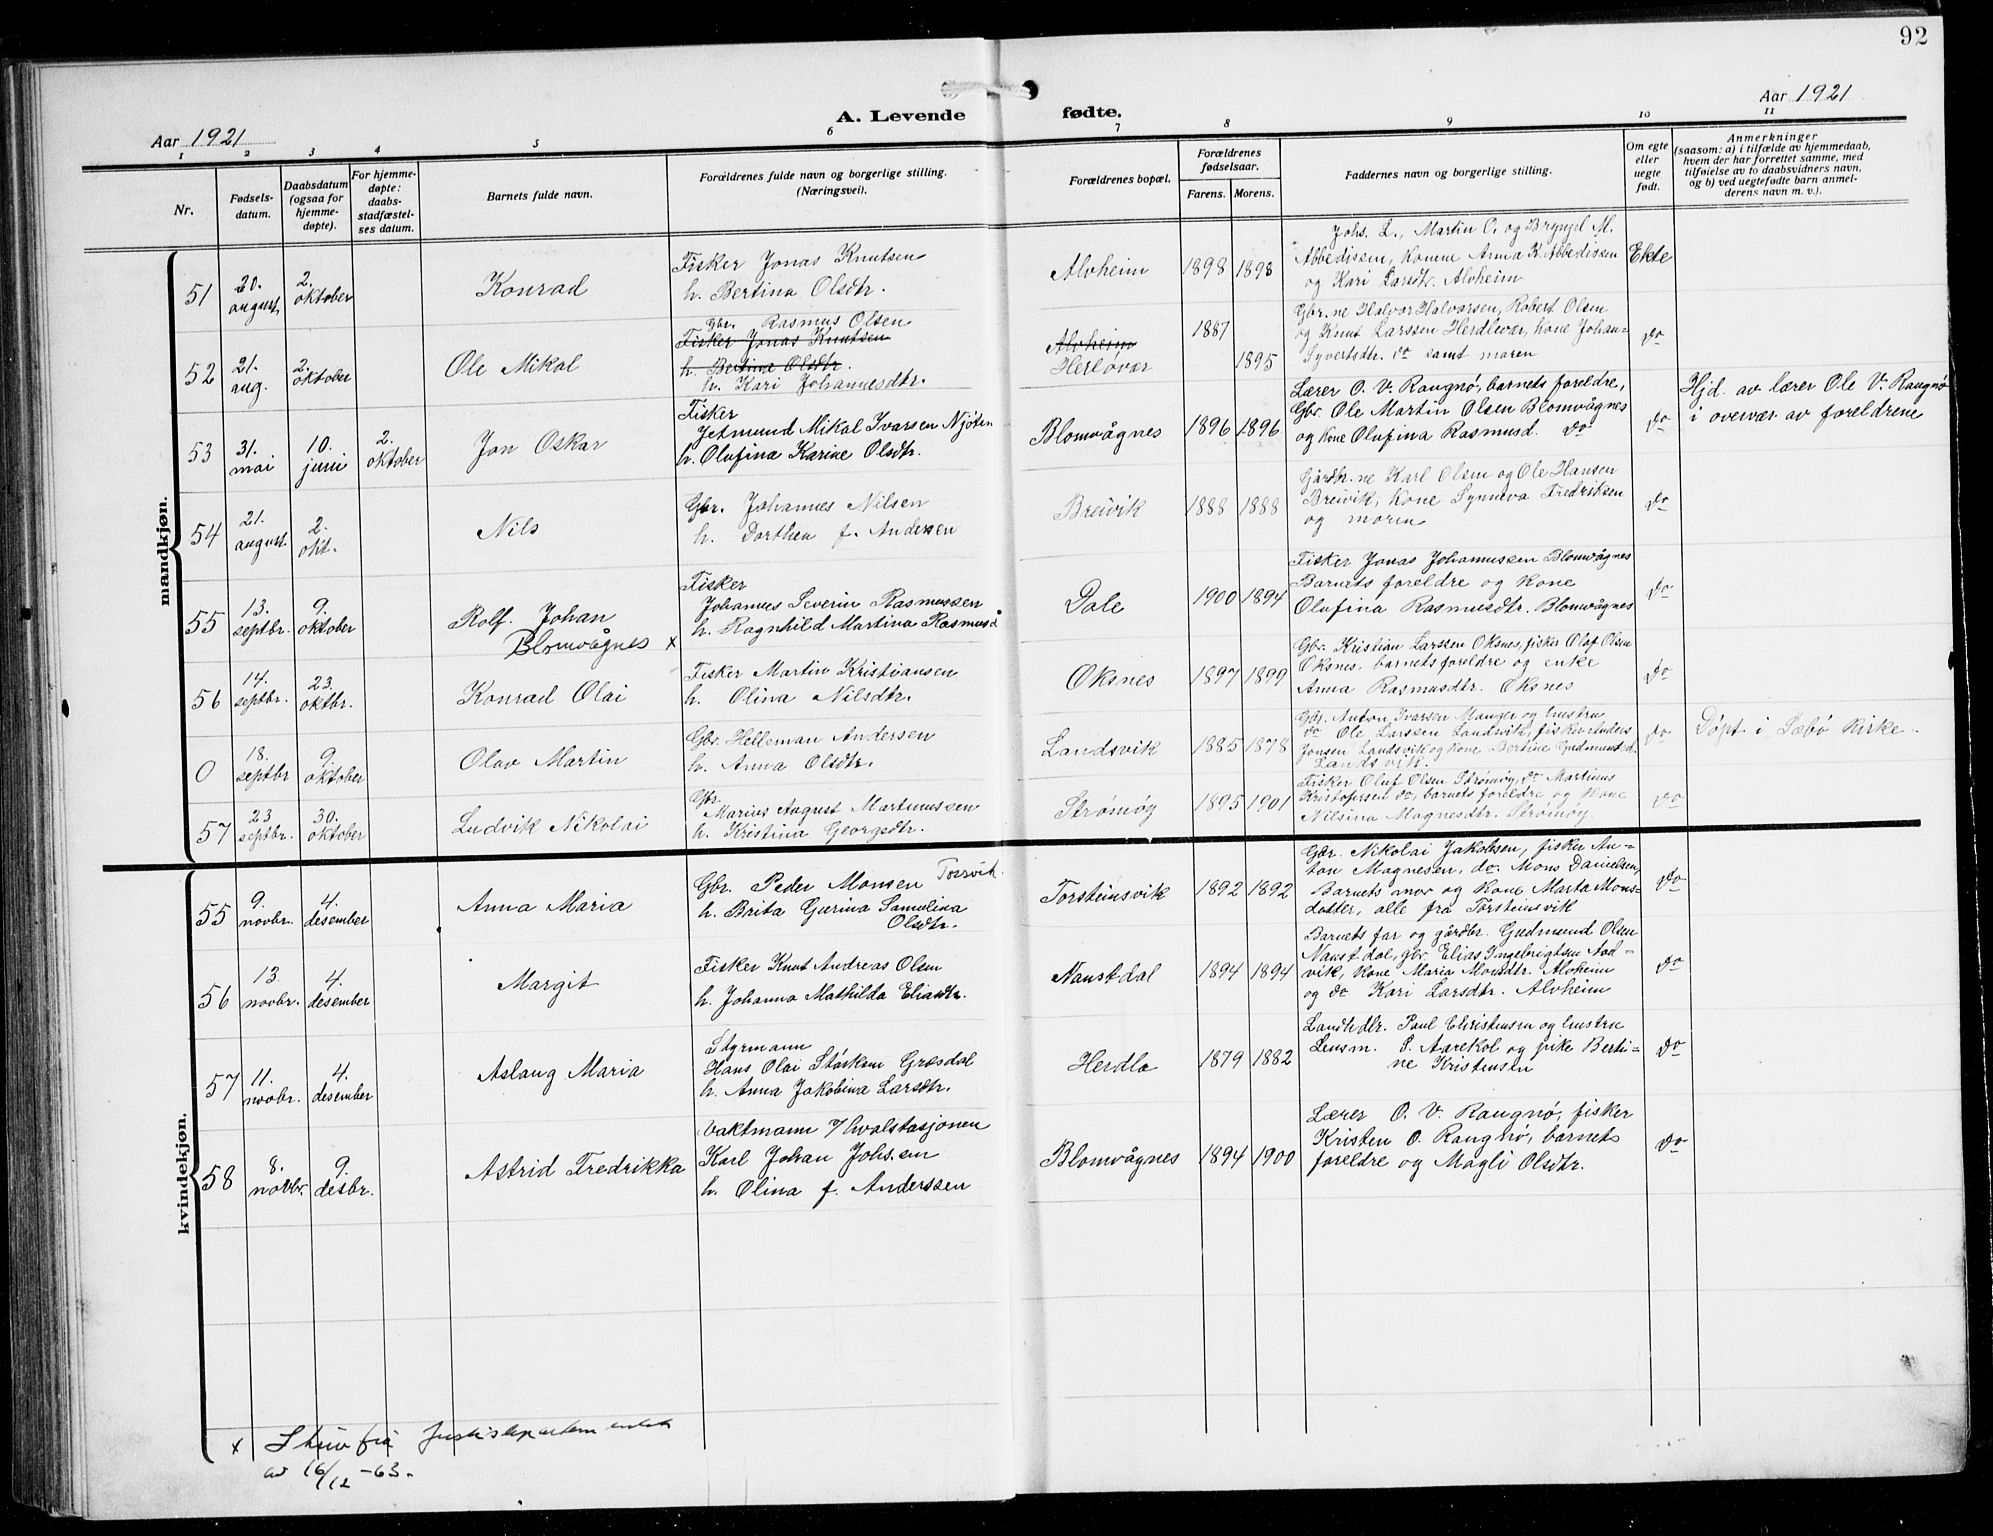 92
Aar 1921
A. Levende fødte.
Aar 1921
1 2 3 4 5 6 7 8 9 10 11
Nr.
Fødsels-
datum.
Daabsdatum
(ogsaa for
hjemme-
døpte).
For hjemme-
døpte:
daabs-
stadfæstel-
ses datum.
Barnets fulde navn.
Forældrenes fulde navn og borgerlige stilling.
(Næringsvei).
Forældrenes bopæl.
Forældrenes
fødselsaar.
Farens. Morens.
Faddernes navn og borgerlige stilling.
Om egte
eller
uegte
født.
Anmerkninger
(saasom: a) i tilfælde av hjemmedaab,
hvem der har forrettet samme, med
tilføielse av to daabsvidners navn,
og b) ved uegtefødte barn anmel-
derens navn m. v.).
mandkjøn.
51
20.
august
2.
oktober
Konrad
Fisker Jonas Knutsen
h. Bertina Olsdtr.
Alvheim
1898 1898
Johs. L., Martin O. og Brynjel M.
Abbedissen, Konene Anna K. Abbedissen
og Kari Larsdtr. Alvheim
Ekte
52
21.
aug.
2.
oktober
Ole Mikal
Gbr. Rasmus Olsen
Fisker Jonas Knutsen
h. Bertina Olsdtr.
h. Kari Johannesdtr.
Alvheim
Herløvær
1887
1895
Gbr.ne Halvor Halvorsen, Robert Olsen
og Knut Larssen Herdlevær, kone Johan-
Syvertsdtr. do samt moren
do
53
31.
mai
10.
juni
2.
oktober
Jon Oskar
Fisker
Jetmund Mikal Ivarsen Njøten
h. Olufina Karine Olsdtr.
Blomvågnes
1896 1896
Lærer O. V. Raugnø, barnets foreldre,
Gbr. Ole Martin Olsen Blomvågnes
og kone Olufina Rasmusd. do
do
Hjd. av lærer Ole V. Raugnø
i overvær av foreldrene
54
21.
august
2.
okt.
Nils
Gbr. Johannes Nilsen
h. Dorthea f. Andersen
Breivik
1888 1888
Gårdbr.ne Karl Olsen og Ole Hansen
Breivik, kone Synneva Fredriksen
og moren
do
55
13.
septbr.
9.
oktober
Rolf Johan
Blomvågnes x
Fisker
Johannes Severin Rasmussen
h. Ragnhild Martina Rasmusd
Dale
1900 1894
Fisker Jonas Johannessen Blomvågnes
Barnets foreldre og kone
Olufina Rasmusdtr. Blomvågnes
do
56
14.
septbr.
23.
oktbr.
Konrad Olai
Fisker Martin Kristiansen
h. Olina Nilsdtr.
Oksnes
1897 1899
Gbr. Kristian Larssen Oksnes, fisker Olaf Olsen
Oksnes, barnets foreldre og enke
Anna Rasmusdtr. Oksnes
do
0
18.
septbr
9.
oktober
Olav Martin
Gbr. Helleman Andersen
h. Anna Olsdtr.
Landsvik
1885 1878
Gbr. Anton Ivarsen Manger og hustru
do Ole Larssen Landsvik, fisker Anders
Jonsen Landsvik og kone Bertine Gudmunsd.
Landsvik.
do
Døpt i Sæbø Kirke.
57
23
septbr.
30.
oktober
Ludvik Nikolai
Gbr
Marius August Martinussen
h. Kristina Georgsdtr.
Strømøy
1895 1901
Fisker Oluf Olsen Strømøy, do Martinus
Kristofersen do, barnets foreldre og kone
Nilsina Magnesdtr. Strømøy.
do
kvindekjøn.
55
9.
novbr.
4.
desember
Anna Maria
Gbr. Peder Monsen Torsvik.
h. Brita Gurina Samolina
Olsdtr.
Torsteinsvik
1892 1892
Gbr. Nikolai Jakobsen, fisker An-
ton Magnesen, do. Mons Danielsen,
Barnets mor og kone Marta Mons-
datter, alle fra Torsteinsvik
do
56
13.
novbr.
4.
desember
Margit
Fisker Knut Andreas Olsen
h. Johanna Mathilda Eliasdtr.
Naustdal
1894 1894
Barnets far og gårdbr. Gudmund Olsen
Naustdal, gbr Elias Ingebrigtsen Nod-
vik, kone Maria Monsdtr. Alvheim
og do Kari Larsdtr. Alvheim
do
57
11.
novbr.
4.
desember
Aslaug Maria
Styrmann
Hans Olai Størksen Græsdal
h. Anna Jakobina Larsdtr.
Herdla
1879 1882
Landhdlr. Paul Christensen og hustru
Lensm. S. Aarekol og pike Berti-
ne Kristensen
do
58
8.
novbr.
9.
desbr.
Astrid Fredrikka
Vaktmann v/ hvalstasjonen
Karl Johan Johs.en
h. Olina f. Anderssen
Blomvågnes
1894 1900
Lærer O. V. Raugnø, fisker
Kristen O. Raugnø, barnets
foreldre og Magli Olsdtr.
do
x Skriv fra Justisdepartementet
av 16/12 -63.